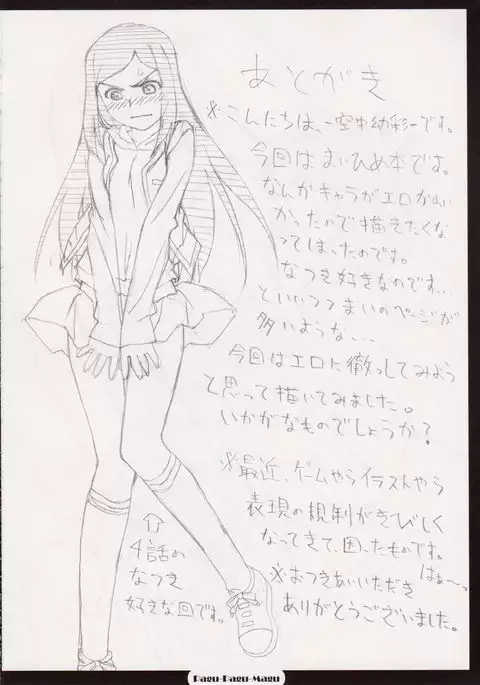 あとがき
※こんにちは、空中幼彩です。
今回はまいひめ本です。
なんかキャラがエロかわい
かったので描きたくな
ってしまったのです。
なつき好きなのです…
といいつつまいのページが
多いような…
今回はエロに徹っしてみよう
と思って描いてみました。
いかがなものでしょうか？
※最近、ゲームやらイラストやら
表現の規制がきびしく
なってきて、困ったものです。
はぁ〜っ
※おつきあいいただき
ありがとうございました。
⇧
4話の
なつき
好きな回です。
Pagu-Pagu-Magu